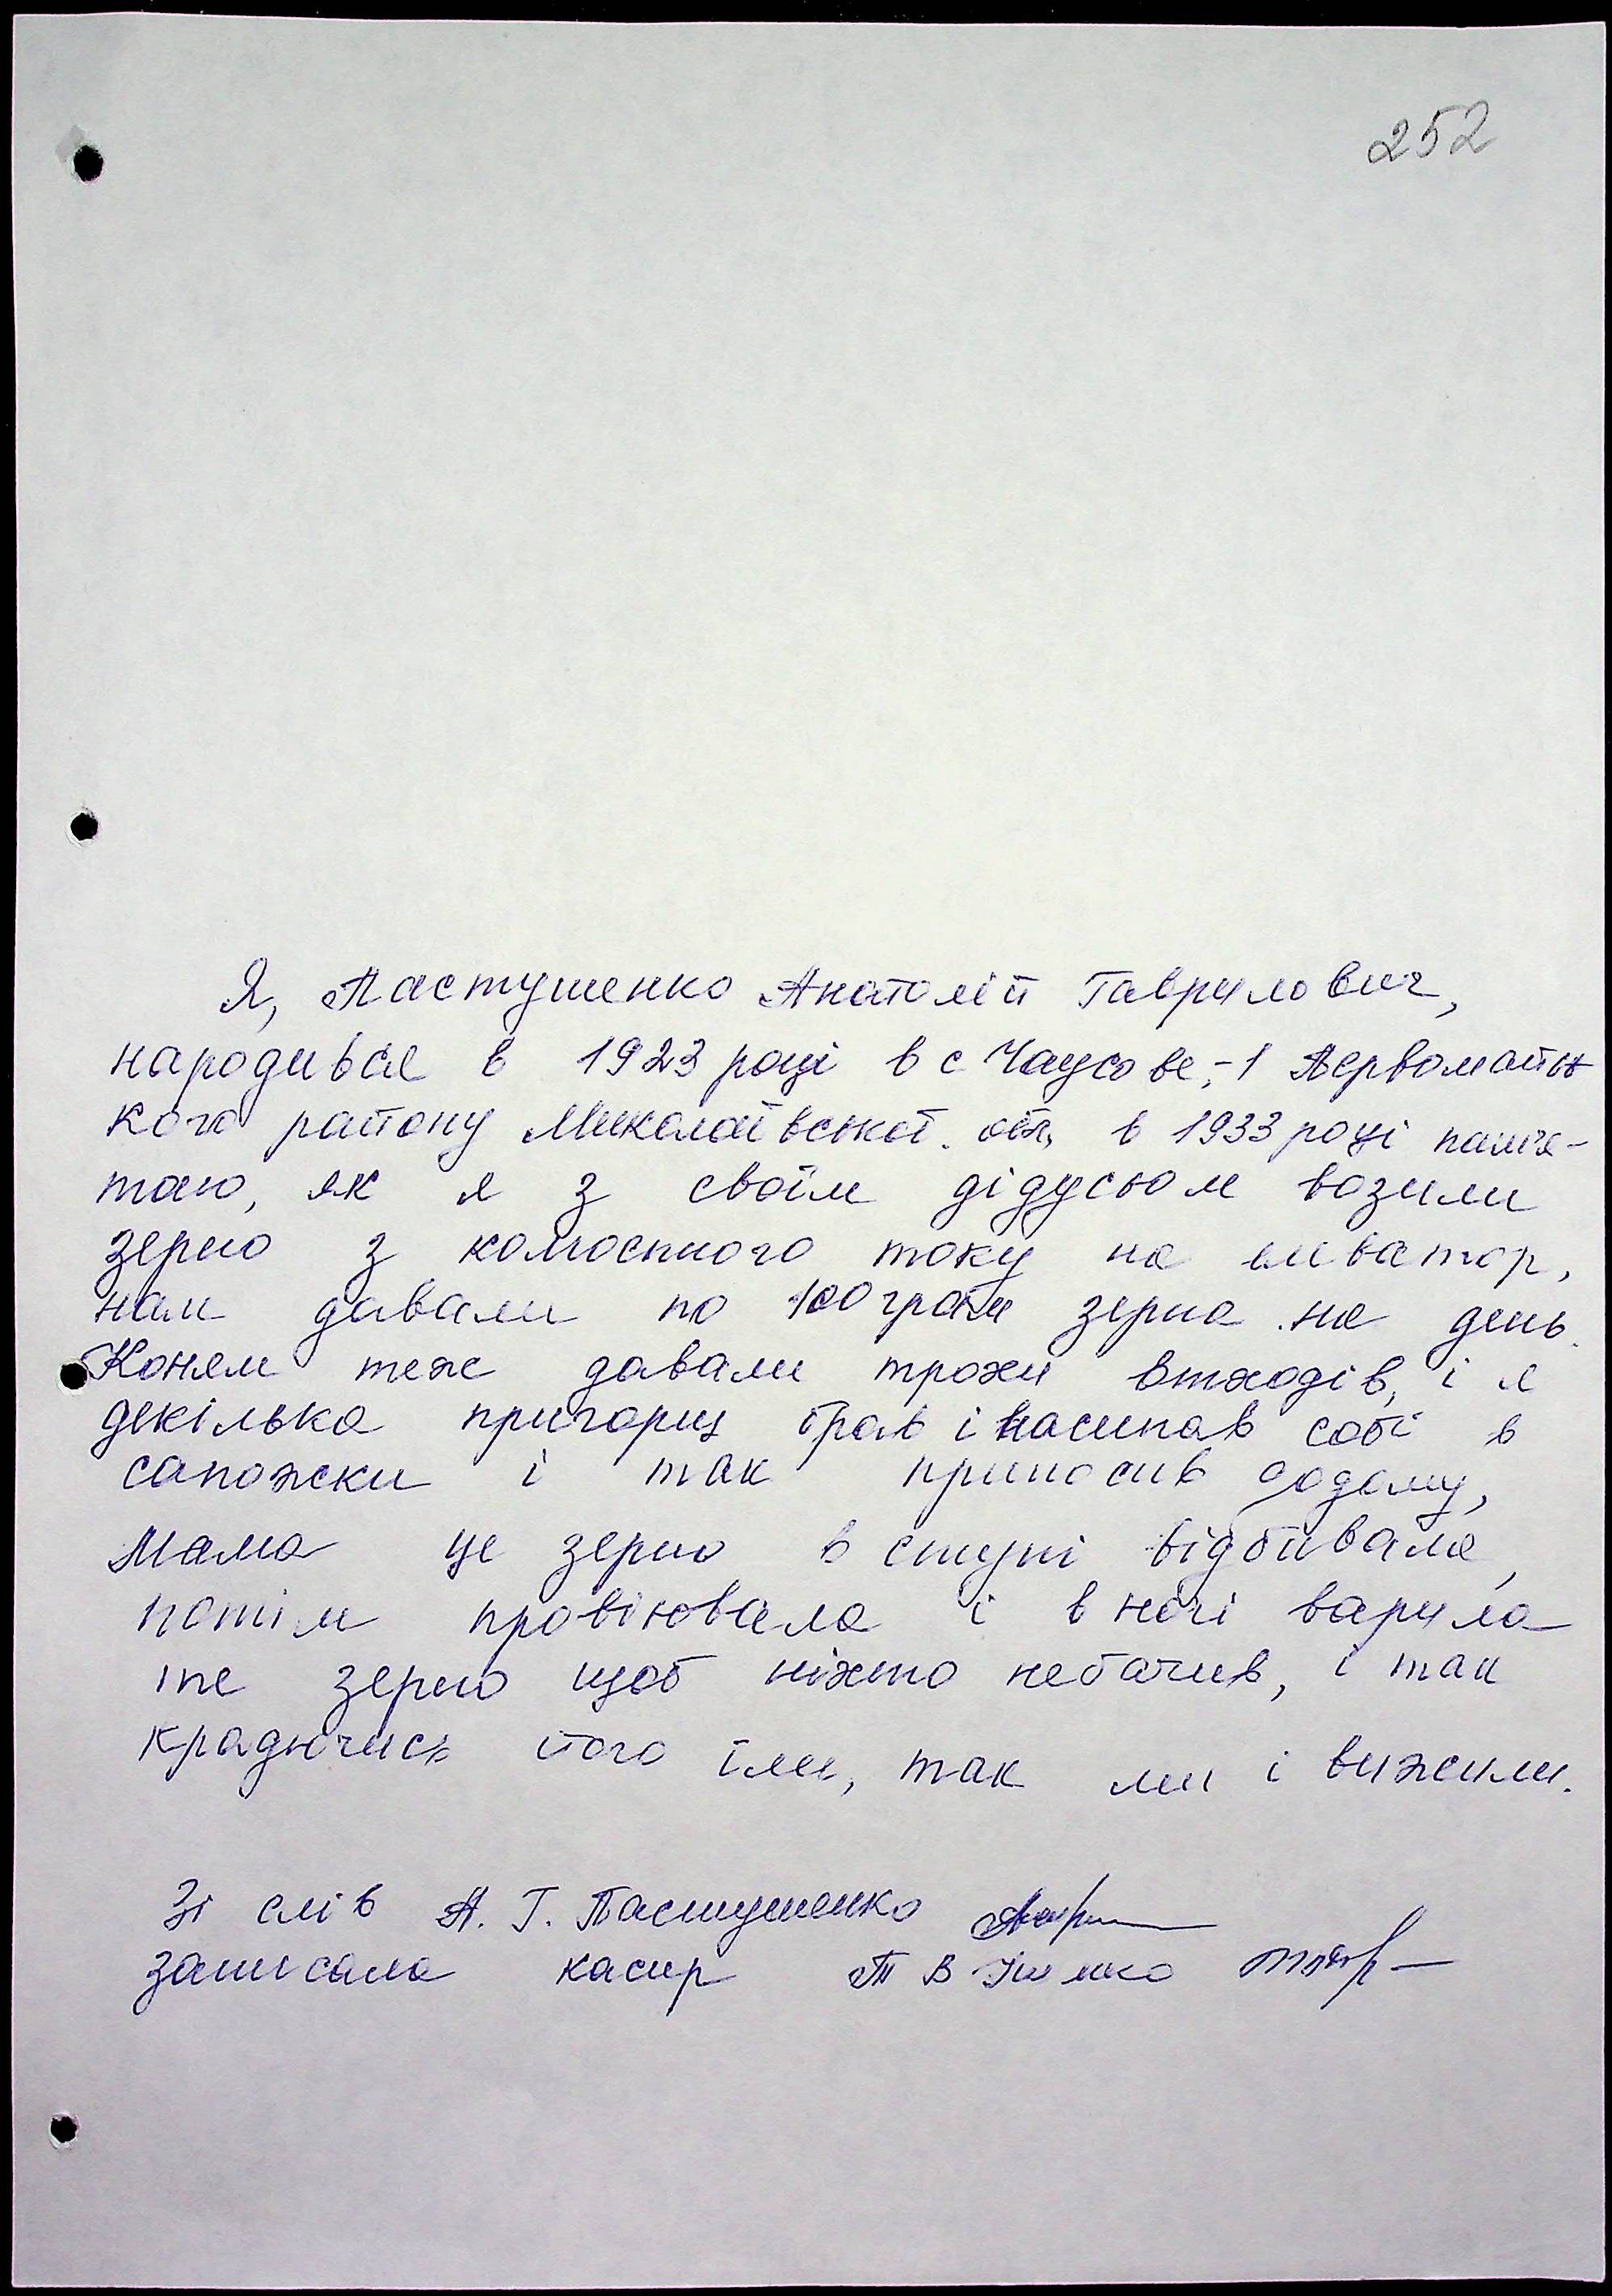 252
Я, Пастушенко Анатолій Гаврилович,
народився в 1923 році в с Чаусове,-1 Первомайсь
кого району Миколаївської. обл, в 1933 році памʼя-
таю, як я з своїм дідусьом возили
зерно з колгоспного току на елеватор,
нам давали по 100 грам зерна на день.
Коням теж давали трохи втходів, і я
декілька пригорщ брав і насипав собі в
сапожки і так приносив додому,
Мама це зерно в ступі відбивала,
потім провіювала і в ночі варила
те зерно щоб ніхто небачив, і так
крадючись його їли, так ми і вижили.
Зі слів А. Г. Пастушенко
записала касир Т В